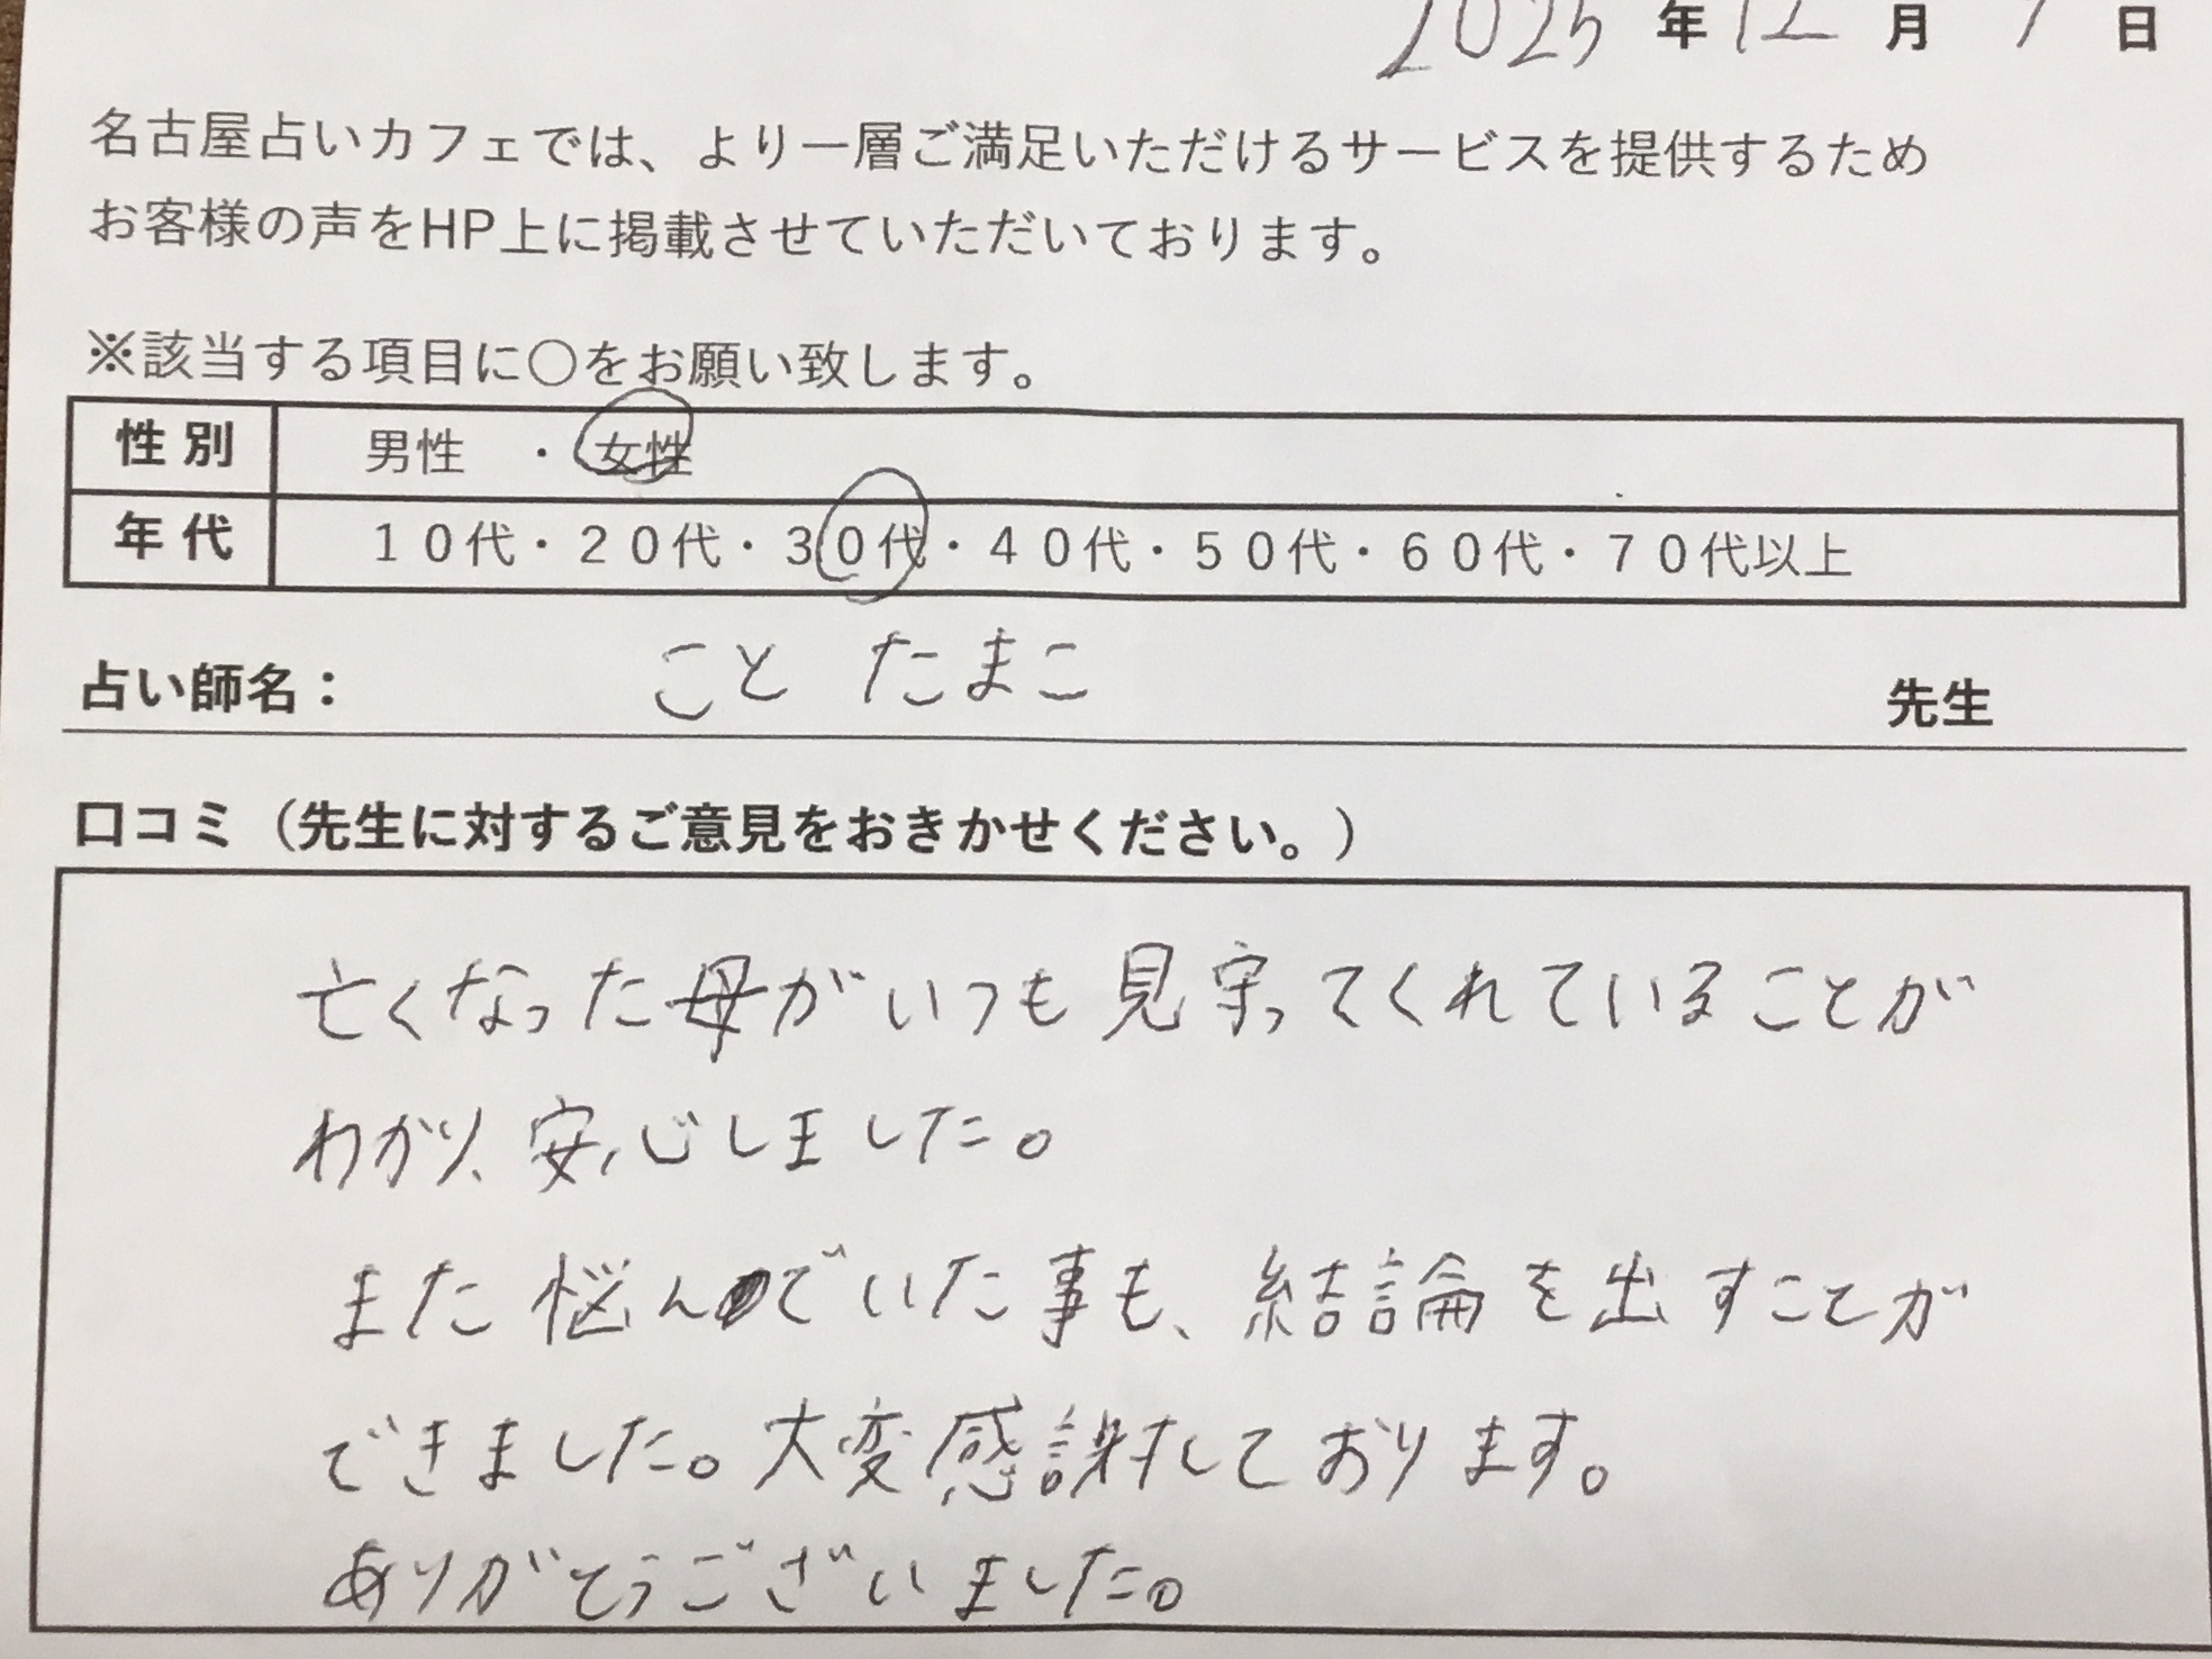 2025年12月 日
名古屋占いカフェでは、より一層ご満足いただけるサービスを提供するため
お客様の声をHP上に掲載させていただいております。
※該当する項目に○をお願い致します。
性別 男性 ・ 女性
年代 10代・20代・30代・40代・50代・60代・70代以上
占い師名： こと たまこ 先生
口コミ（先生に対するご意見をおきかせください。）
亡くなった母がいつも見守ってくれていることが
わかり、安心しました。
また悩んでいた事も、結論を出すことが
できました。大変感謝しております。
ありがとうございました。